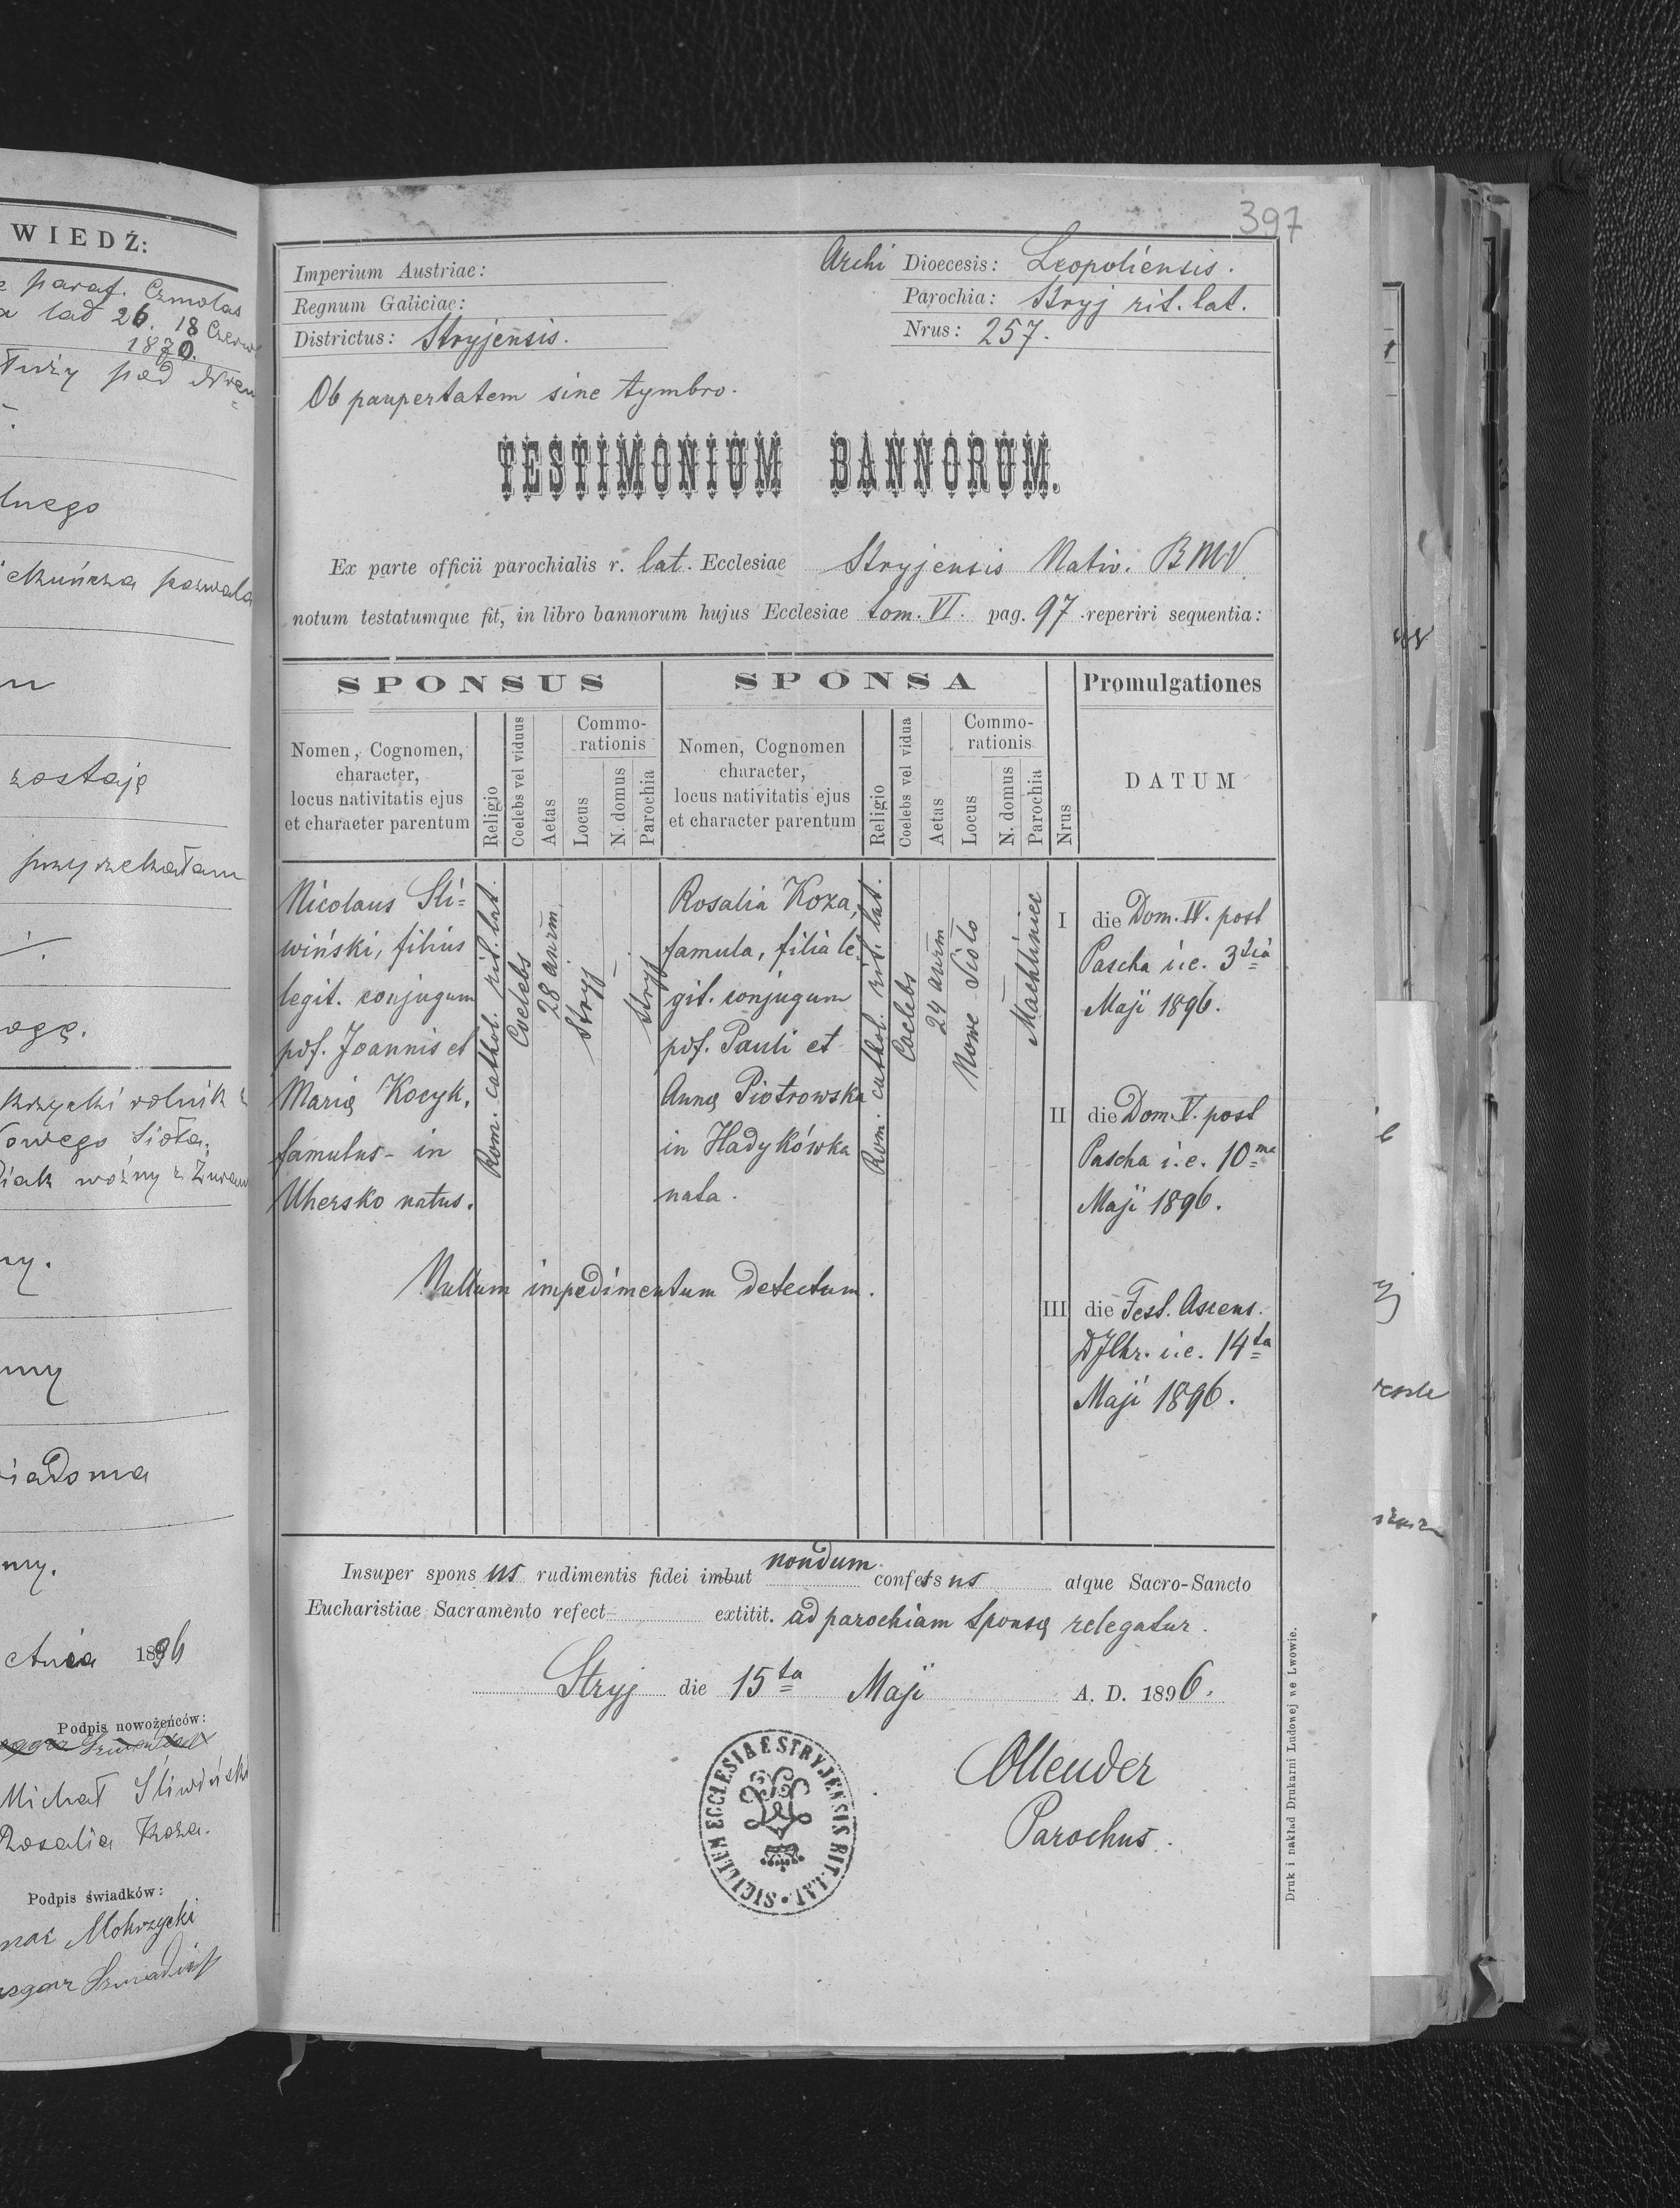 WIEDŹ:
paraf. Czmolas
26. 18 Czerw
1870.
pod
lnego
pozwala
zostają
przyrzekałam
rolnik
owego Sioła,
woźny z Żuraw
iadoma
1896
Podpis nowożeńców:
Michał Śliwiński
Rosalia Koza.
Podpis świadków:
Mokrzycki
397
Imperium Austriae:
Regnum Galiciae:
Districtus: Stryjensis.
Archi Dioecesis: Leopoliensis.
Parochia: Stryj rit. lat.
Nrus: 257.
Ob paupertatem sine tymbro.
TESTIMONIUM BANNORUM.
Ex parte officii parochialis r. lat. Ecclesiae Stryjensis Nativ. BMV.
notum testatumque fit, in libro bannorum hujus Ecclesiae tom. VI. pag. 97 reperiri sequentia:
SPONSUS
Nomen, Cognomen,
character,
locus nativitatis ejus
et character parentum
Religio
Coelebs vel viduus
Aetas
Commo-
rationis
Locus
N. domus
Parochia
SPONSA
Nomen, Cognomen
character,
locus nativitatis ejus
et character parentum
Religio
Coelebs vel vidua
Aetas
Commo-
rationis
Locus
N. domus
Parochia
Nrus
Promulgationes
DATUM
Nicolaus Śli=
wiński, filius
legit. conjugum
pdf. Joannis et
Marię Kocyk,
famulus - in
Uhersko natus.
Rom. cathol. rit. lat.
Coelebs
28 anrm.
Stryj
-
Stryj
Rosalia Koza,
famula, filia le
git. conjugum
pdf. Pauli et
Annę Piotrowska
in Hadykówka
nata.
Rom. cathol. rit. lat.
Coelebs
24 anrm
Nowe Sioło
-
Machliniec
I die Dom. IV. post
Pascha i.e. 3tia
Maji 1896.
II die Dom. V. post
Pascha i.e. 10ma
Maji 1896.
III die Fest. Ascens.
DJChr. i.e. 14ta
Maji 1896.
Nullum impedimentum detectum.
Insuper spons us rudimentis fidei imbut nondum confess us atque Sacro-Sancto
Eucharistiae Sacramento refect- extitit. ad parochiam sponsę relegatur.
Stryj die 15ta Maji A. D. 1896.
Ollender
Parochus.
SIGILLUM ECCLESIAE STRYJENSIS RIT. LAT.
Druk i nakład Drukarni Ludowej we Lwowie.